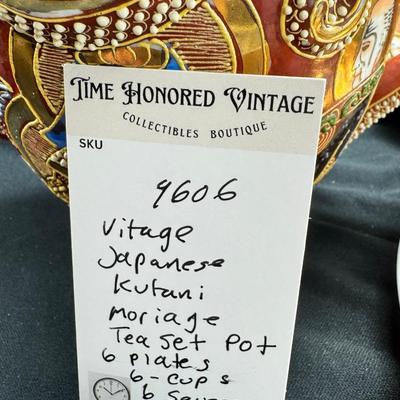 TIME HONORED VINTAGE
COLLECTIBLES BOUTIQUE
SKU
9606
Vitage
Japanese
Kutani
Moriage
Tea Set Pot
6 plates
6-cups
6